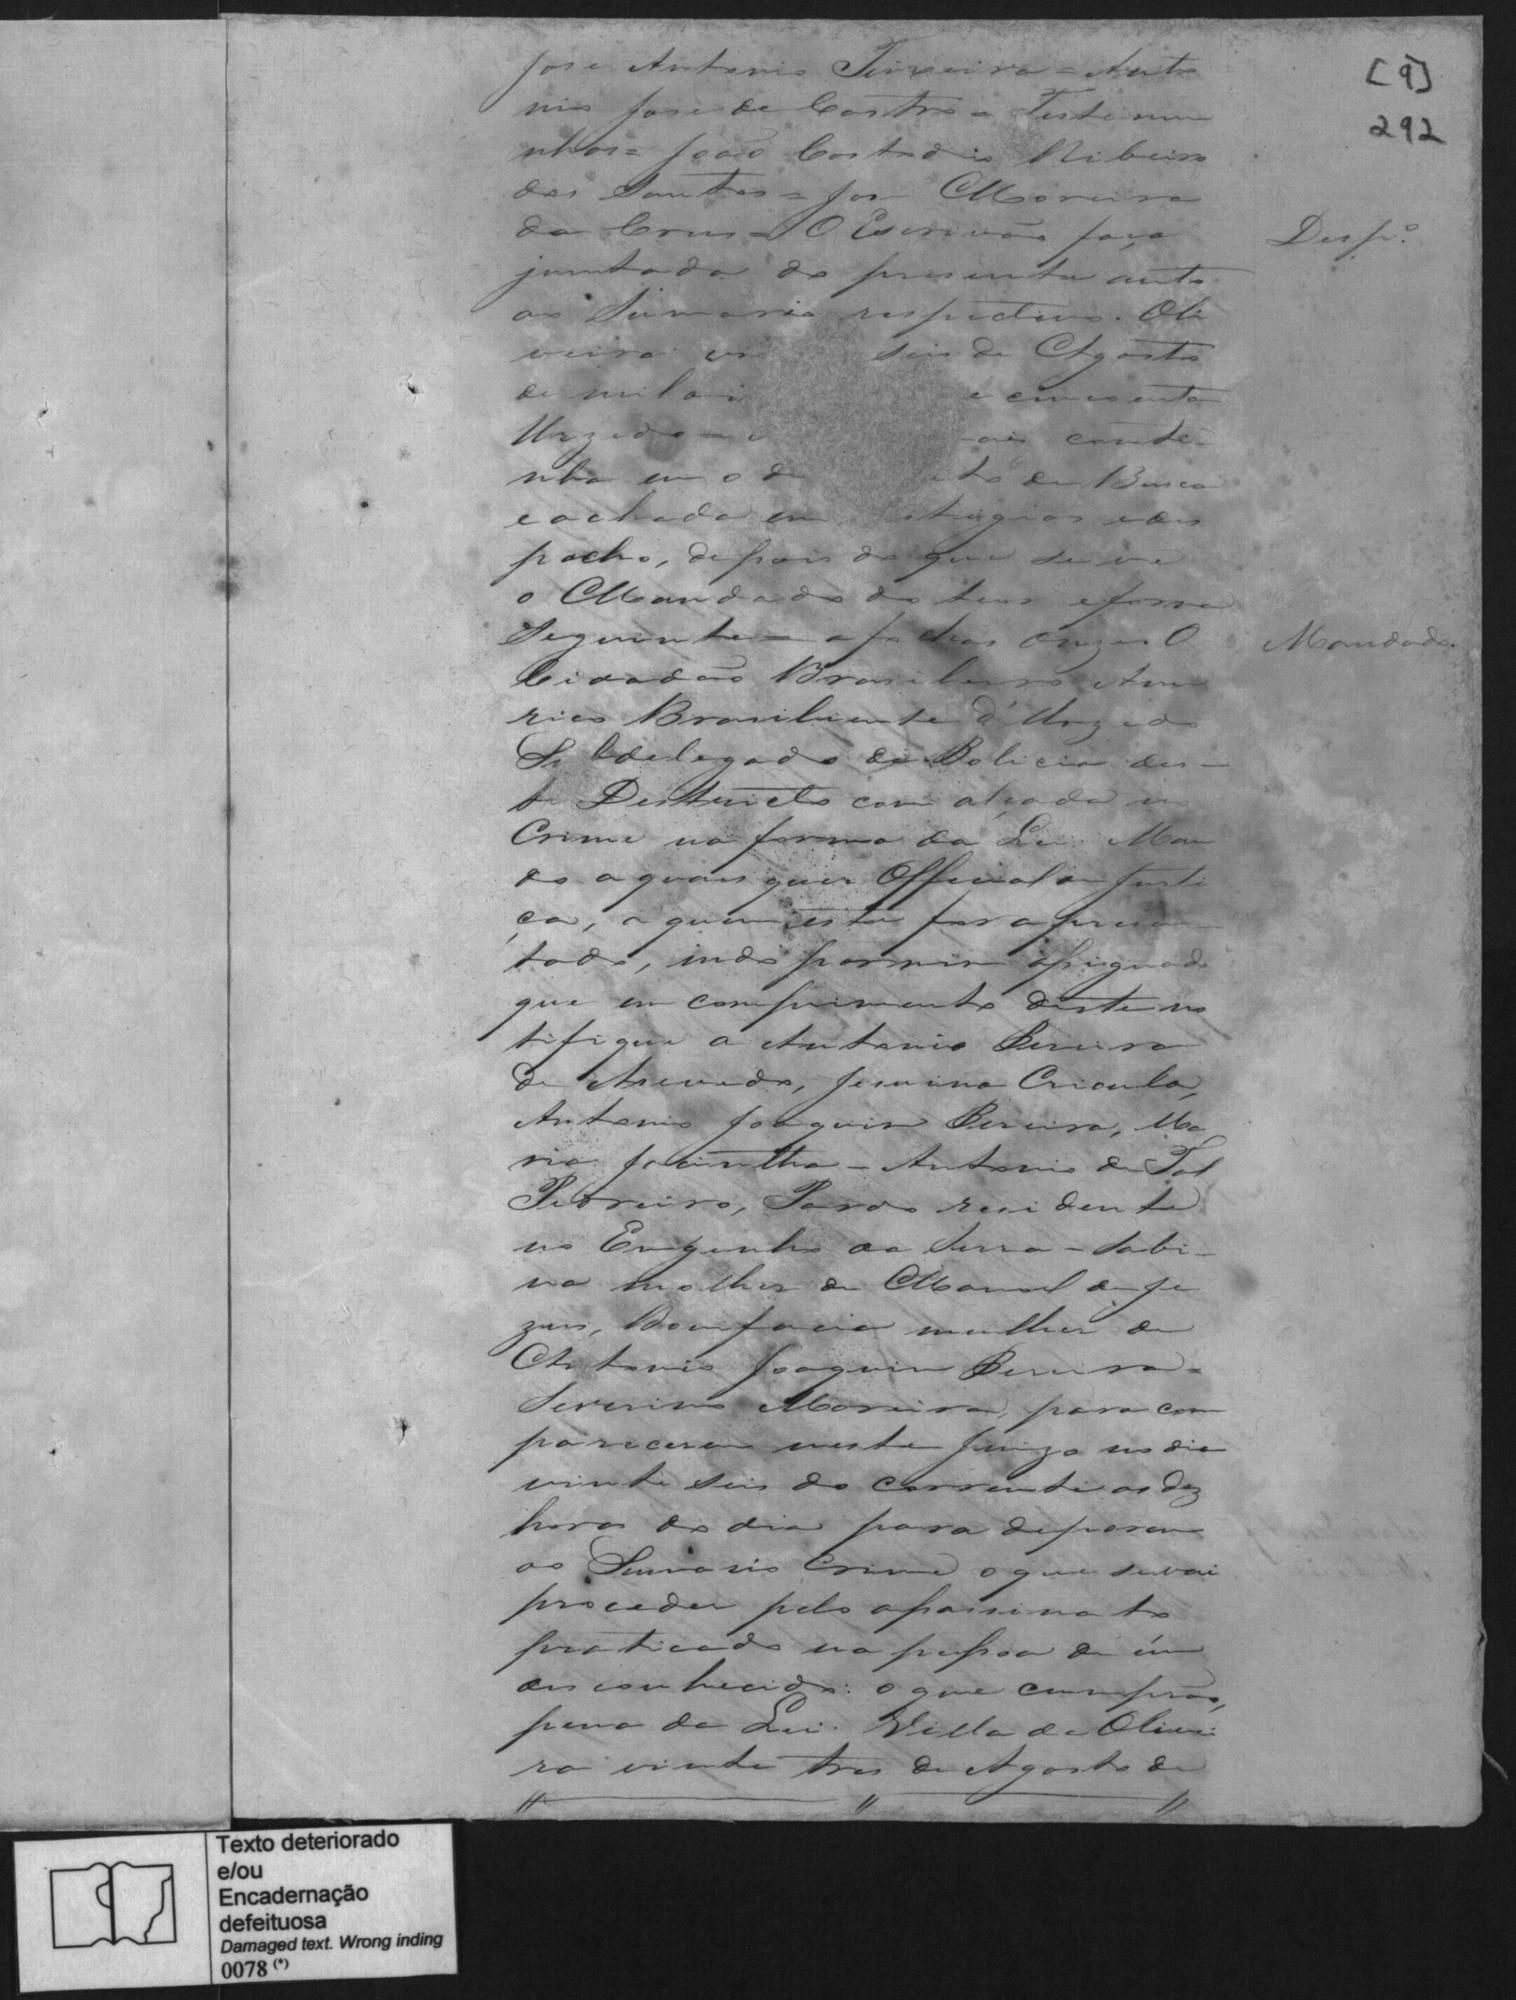 [9]
292
Jose Antonio Teixeira = Anto
nio Jose de Castro = Testemu
nhas = João Custodio Ribeiro
dos Santos = Jose Moreira
da Crus = O Escrivão faça
Desp.º
juntada do presente auto
ao Sumario respectivo. Oli
veira seis de Agosto
de mil oi e cincoenta
Urzedo = conti
nha em o de Busca
e achada em e des
pacho, depois do que se ve
o Mandado do teor e forma
seguinte = a folhas onze = O
Mandado.
Cidadão Brasileiro Ame
rico Brasiliente d'Urzedo
Subdelegado da Policia des-
te Destricto com alçada no
Crime na forma da Lei. Man
do a quaes quer Official de Justi
ça, a quem este for apresen
tado, indo por mim assignado
que em comprimento deste no
tifique a Antonio Pereira
de Asevedo, Jesuina Crioula,
Antonio Joaquim Pereira, Ma
ria Jacintha = Antonio de Tal
Pedreiro, Pardo residente
no Engenho da Serra = Sabi-
na molher de Manoel de Je
zus, Bonifacia mulher de
Antonio Joaquim Pereira =
Severino Moreira, para com
parecerem neste Juizo no dia
vinte seis do corrente as dez
horas do dia para deporem
ao Sumario Crime o que se vai
proceder pelo assassinato
praticado na pessoa de um
desconhecido: o que cumprão,
pena da Lei. Villa de Olivei
ra vinte tres de Agosto de
Texto deteriorado
e/ou
Encadernação
defeituosa
Damaged text. Wrong inding
0078 (*)